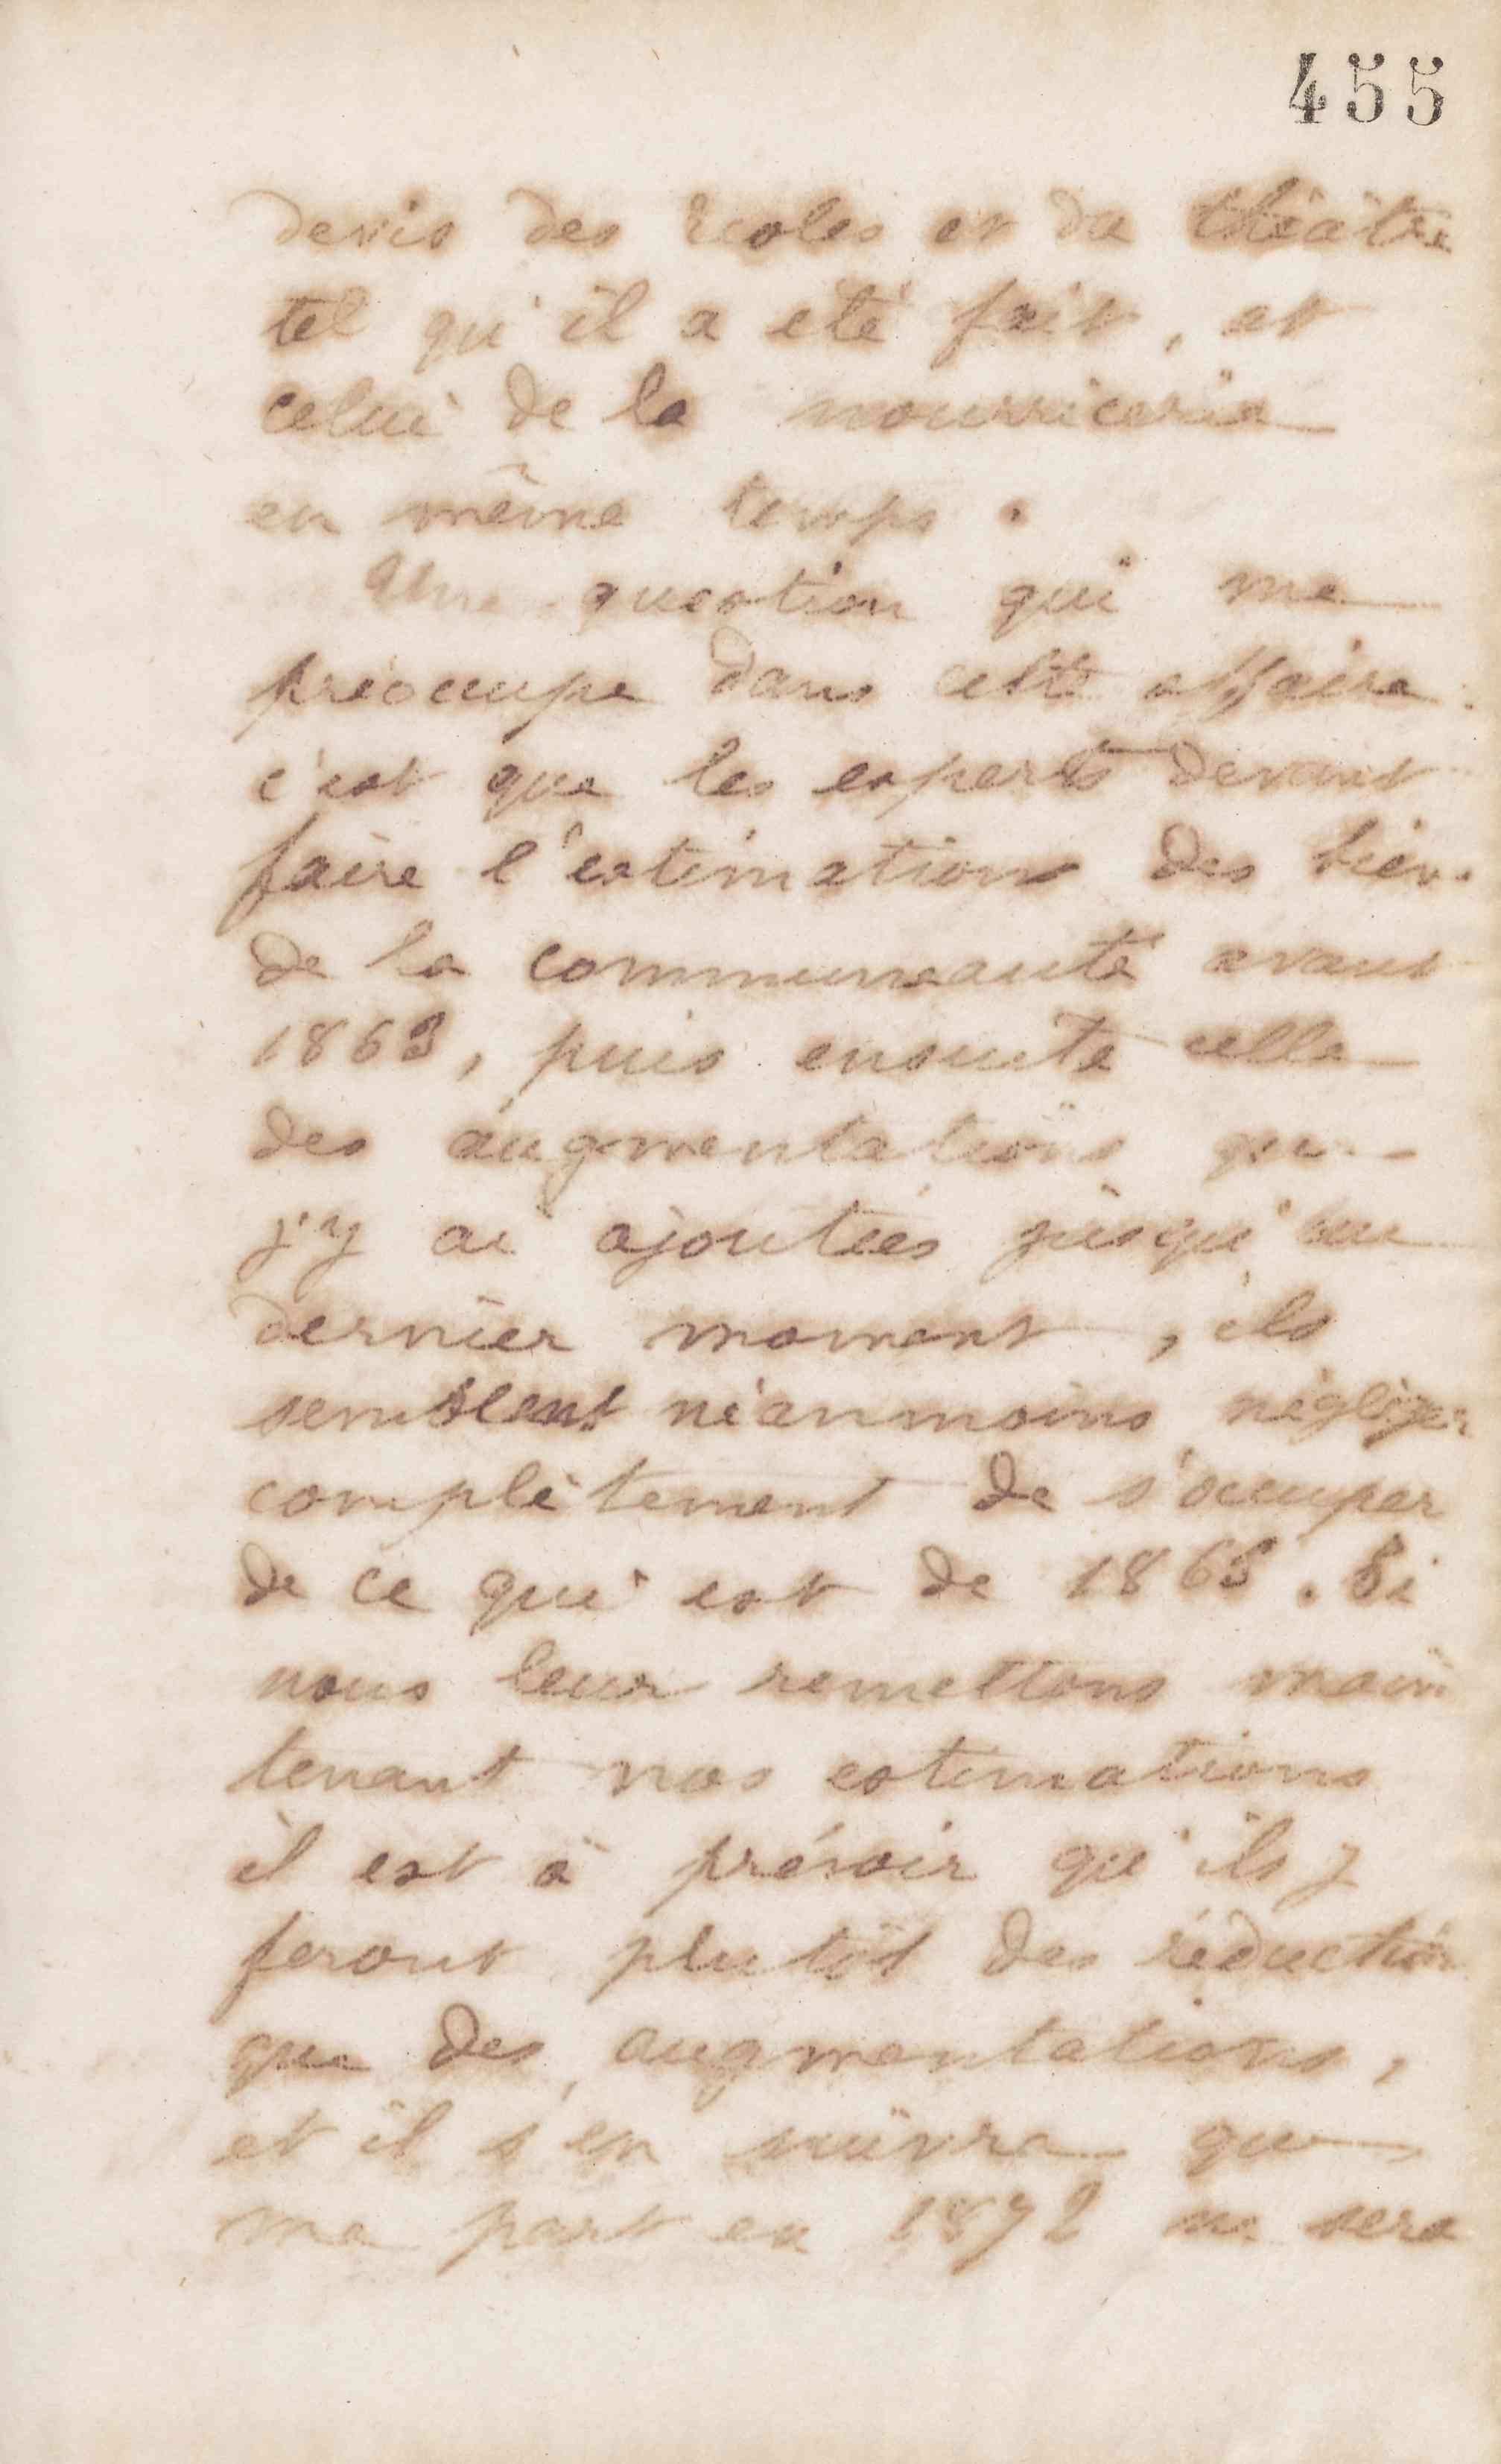 455
devis des écoles et du théâtre
tel qu'il a été fait, et
celui de la nourricerie
en même temps.
Une question qui me
préoccupe dans cette affaire
c'est que les experts devant
faire l'estimation des biens
de la communauté avant
1863, puis ensuite celle
des augmentations que
j'y ai ajoutées jusqu'au
dernier moment, ils
semblent néanmoins négliger
complètement de s'occuper
de ce qui est de 1863. Si
nous leur remettons main
tenant nos estimations
il est à prévoir qu'ils y
feront plutôt des réductions
que des augmentations,
et il s'en suivra que
ma part en 1872 ne sera